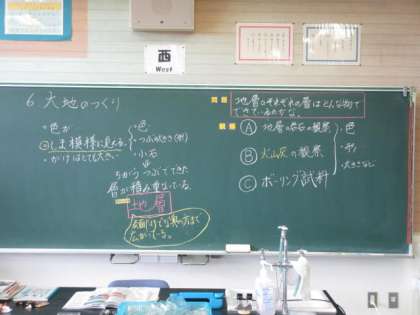 西
West
6 大地のつくり
・色が
しま模様に見える。
・がけはとても大きい
・色
・つぶの大きさ(形)
・小石
ちがうつぶでできた
層が積み重なっている。
地層
広がっている。
問題
地層のそれぞれの層はどんな物で
できているのかな。
観察
Ⓐ 地層の岩石の観察
Ⓑ 火山灰の観察
Ⓒ ボーリング試料
・色
・形
・大きさなど